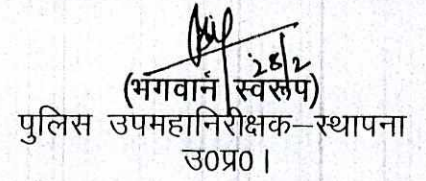 28/2
(भगवान स्वरूप)
पुलिस उपमहानिरीक्षक–स्थापना
उ0प्र0।